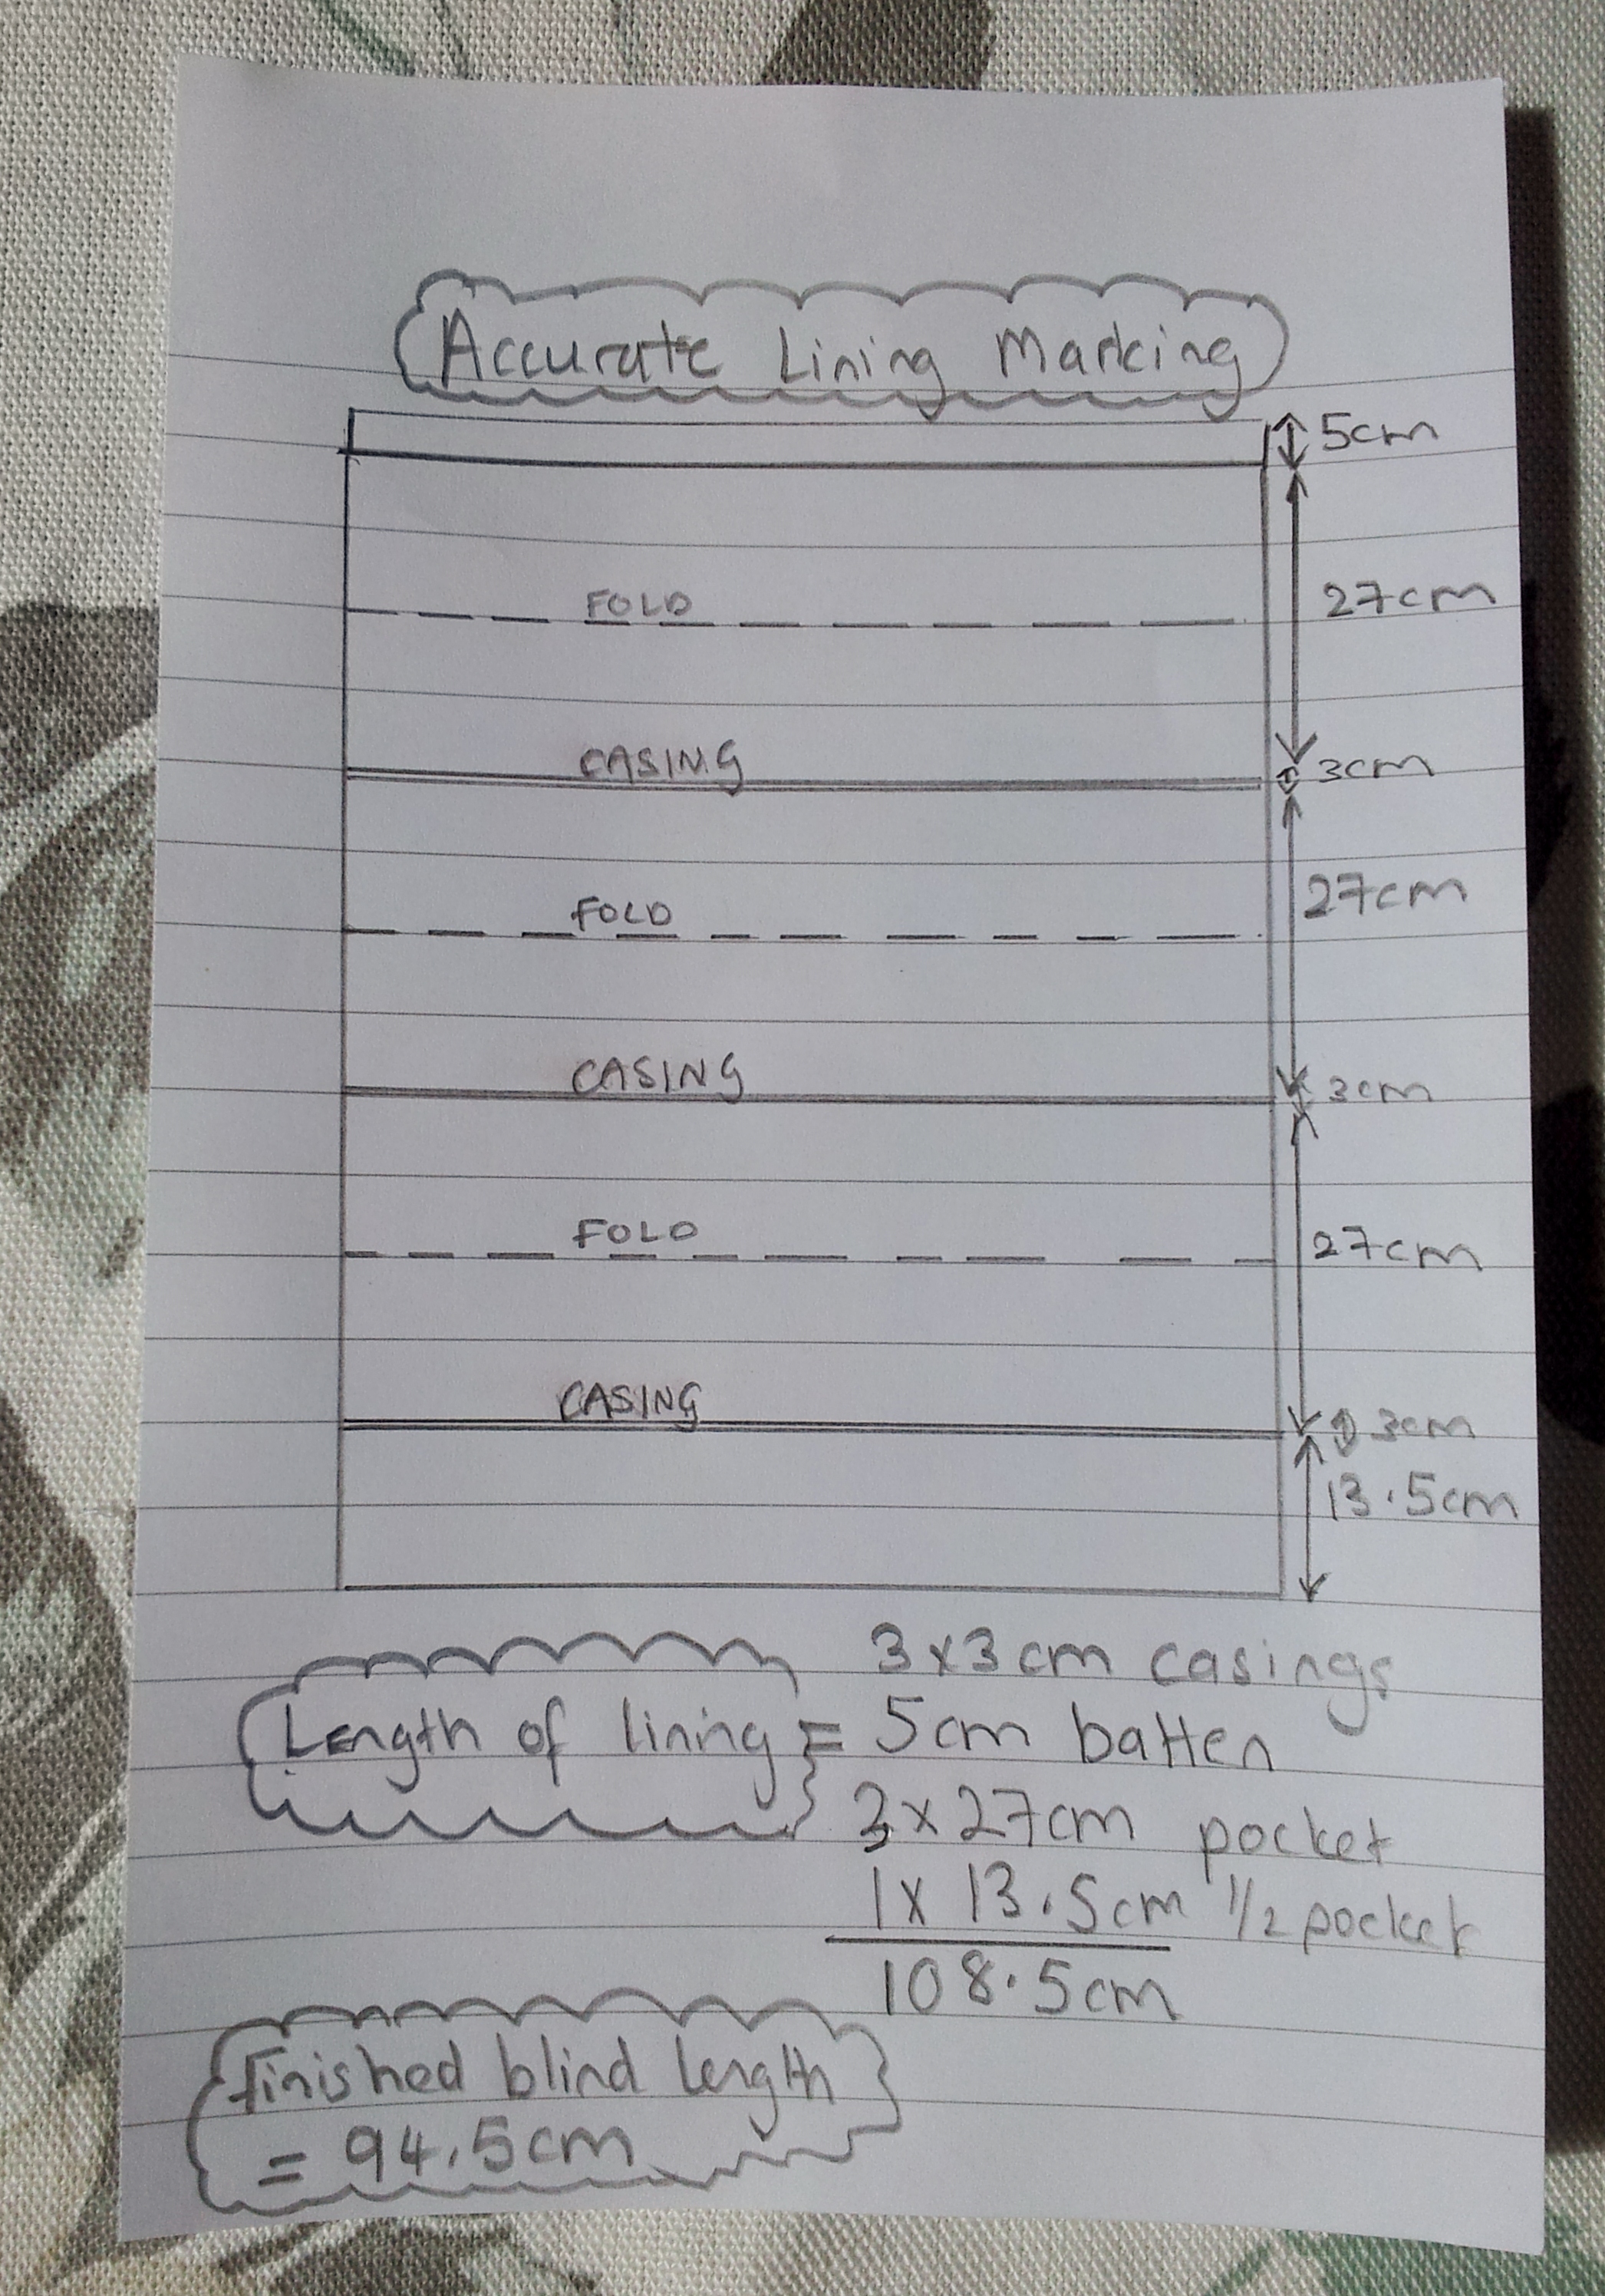 Accurate Lining Marking
5cm
FOLD
27cm
CASING
3cm
27cm
FOLD
CASING
3cm
FOLD
27cm
CASING
3cm
13.5cm
Length of lining = 3x3cm casings
5cm batten
3x27cm pocket
1x 13.5cm 1/2 pocket
108.5cm
Finished blind length
= 94.5cm